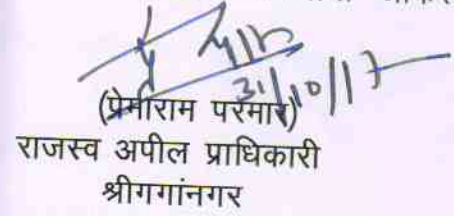 31/10/17
(प्रेमाराम परमार)
राजस्व अपील प्राधिकारी
श्रीगगांनगर